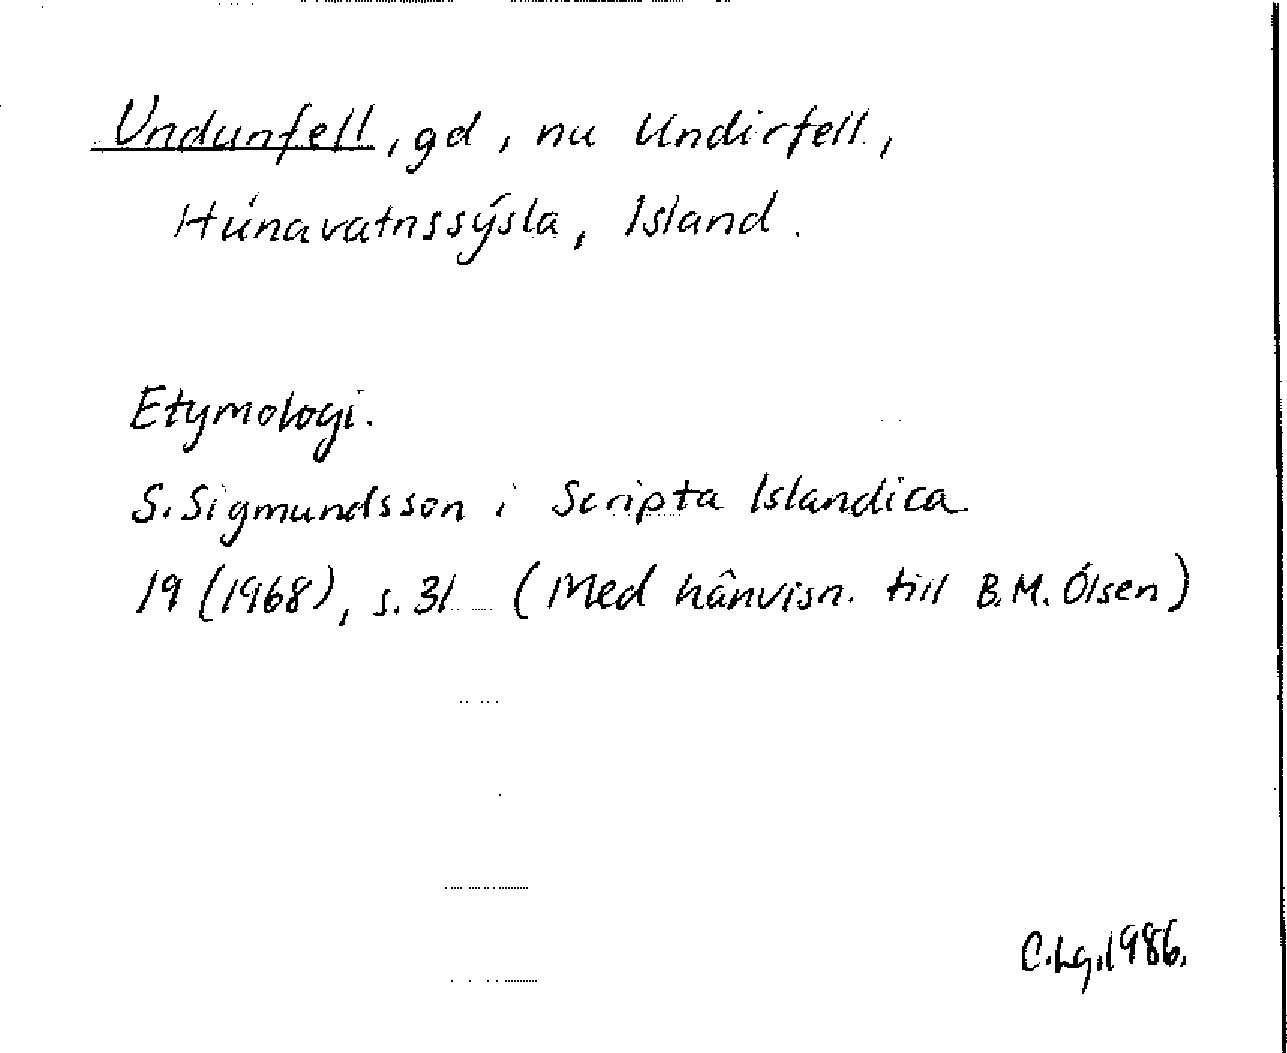 Undunfell, gd, nu Undirfell,
Húnavatnssýsla, Island.
Etymologi.
S. Sigmundsson i Scripta Islandica
19 (1968), s. 31 (Med hänvisn. till B.M. Ólsen)
C.Lg. 1986.